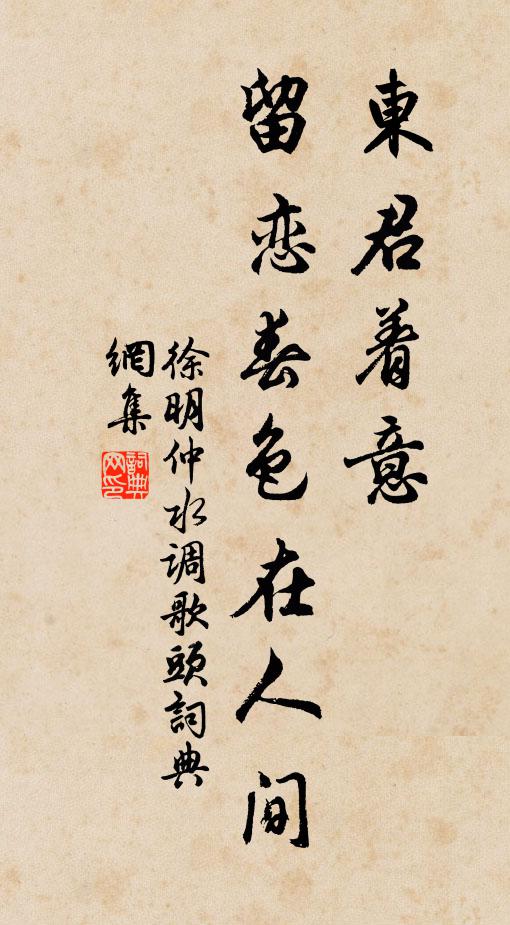 東君着意
留恋春色在人间
徐明仲水调歌頭詞典
網集
詞典
网印